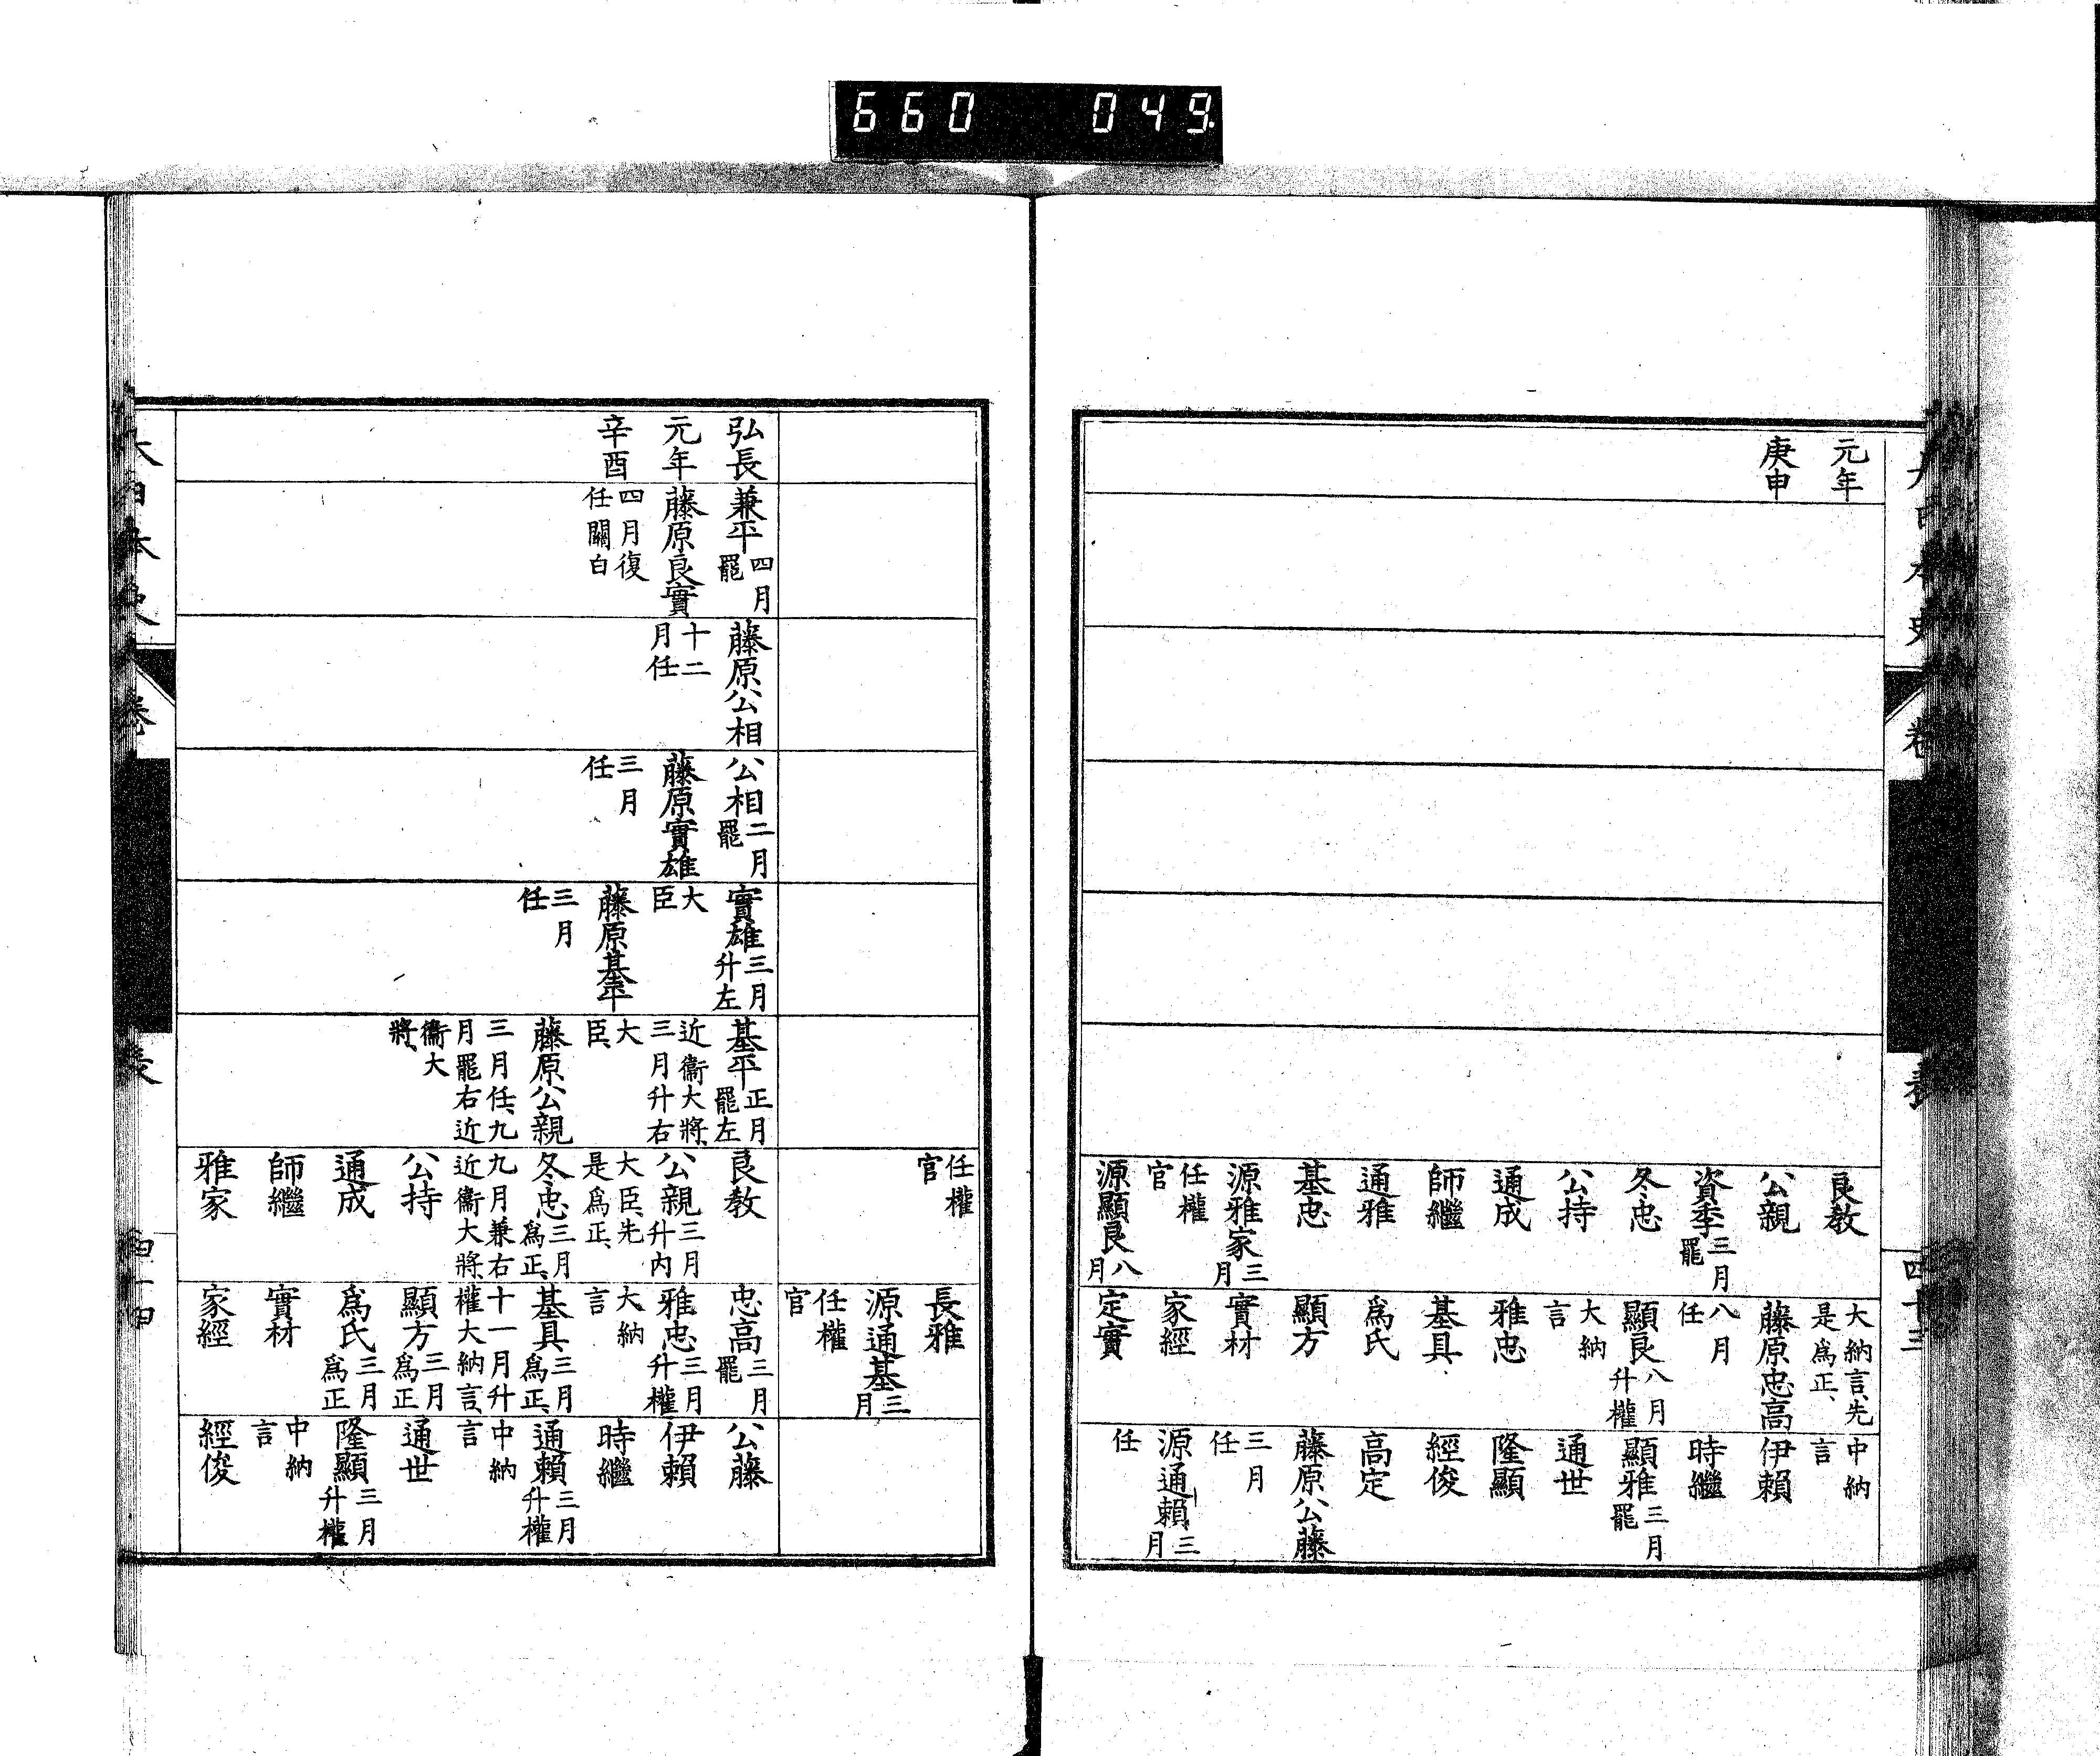 660 049
元年
庚申
良教
公親
資季三月罷
冬忠
公持
通成
師繼
通雅
基忠
源雅家三月
任權官
源顯良八月
大納言、先是爲正、
藤原忠高
八月任
顯良八月升權
大納言
雅忠
基具
爲氏
顯方
實材
家經
定實
中納言
伊賴
時繼
顯雅三月罷
通世
隆顯
經俊
高定
藤原公藤
三月任
源通賴三月
任
表
四十三
任權官
長雅
源通基三月
任權官
弘長
元年
辛酉
兼平四月罷
藤原良實
四月復任關白
藤原公相
十二月任
公相二月罷
藤原實雄
三月任
實雄三月升左
大臣
藤原基平
三月任
基平正月罷左
近衞大將、三月升右
大臣、
藤原公親
三月任、九月罷右近
衞大將、
良教
公親三月升内
大臣、先是爲正、
冬忠三月爲正、
九月兼右近衞大將、
公持
通成
師繼
雅家
忠高三月罷
雅忠三月升權
大納言
基具三月爲正、
十一月升權大納言、
顯方三月爲正
爲氏三月爲正
實材
家經
公藤
伊賴
時繼
通賴三月升權
中納言
通世
隆顯三月升權
中納言
經俊